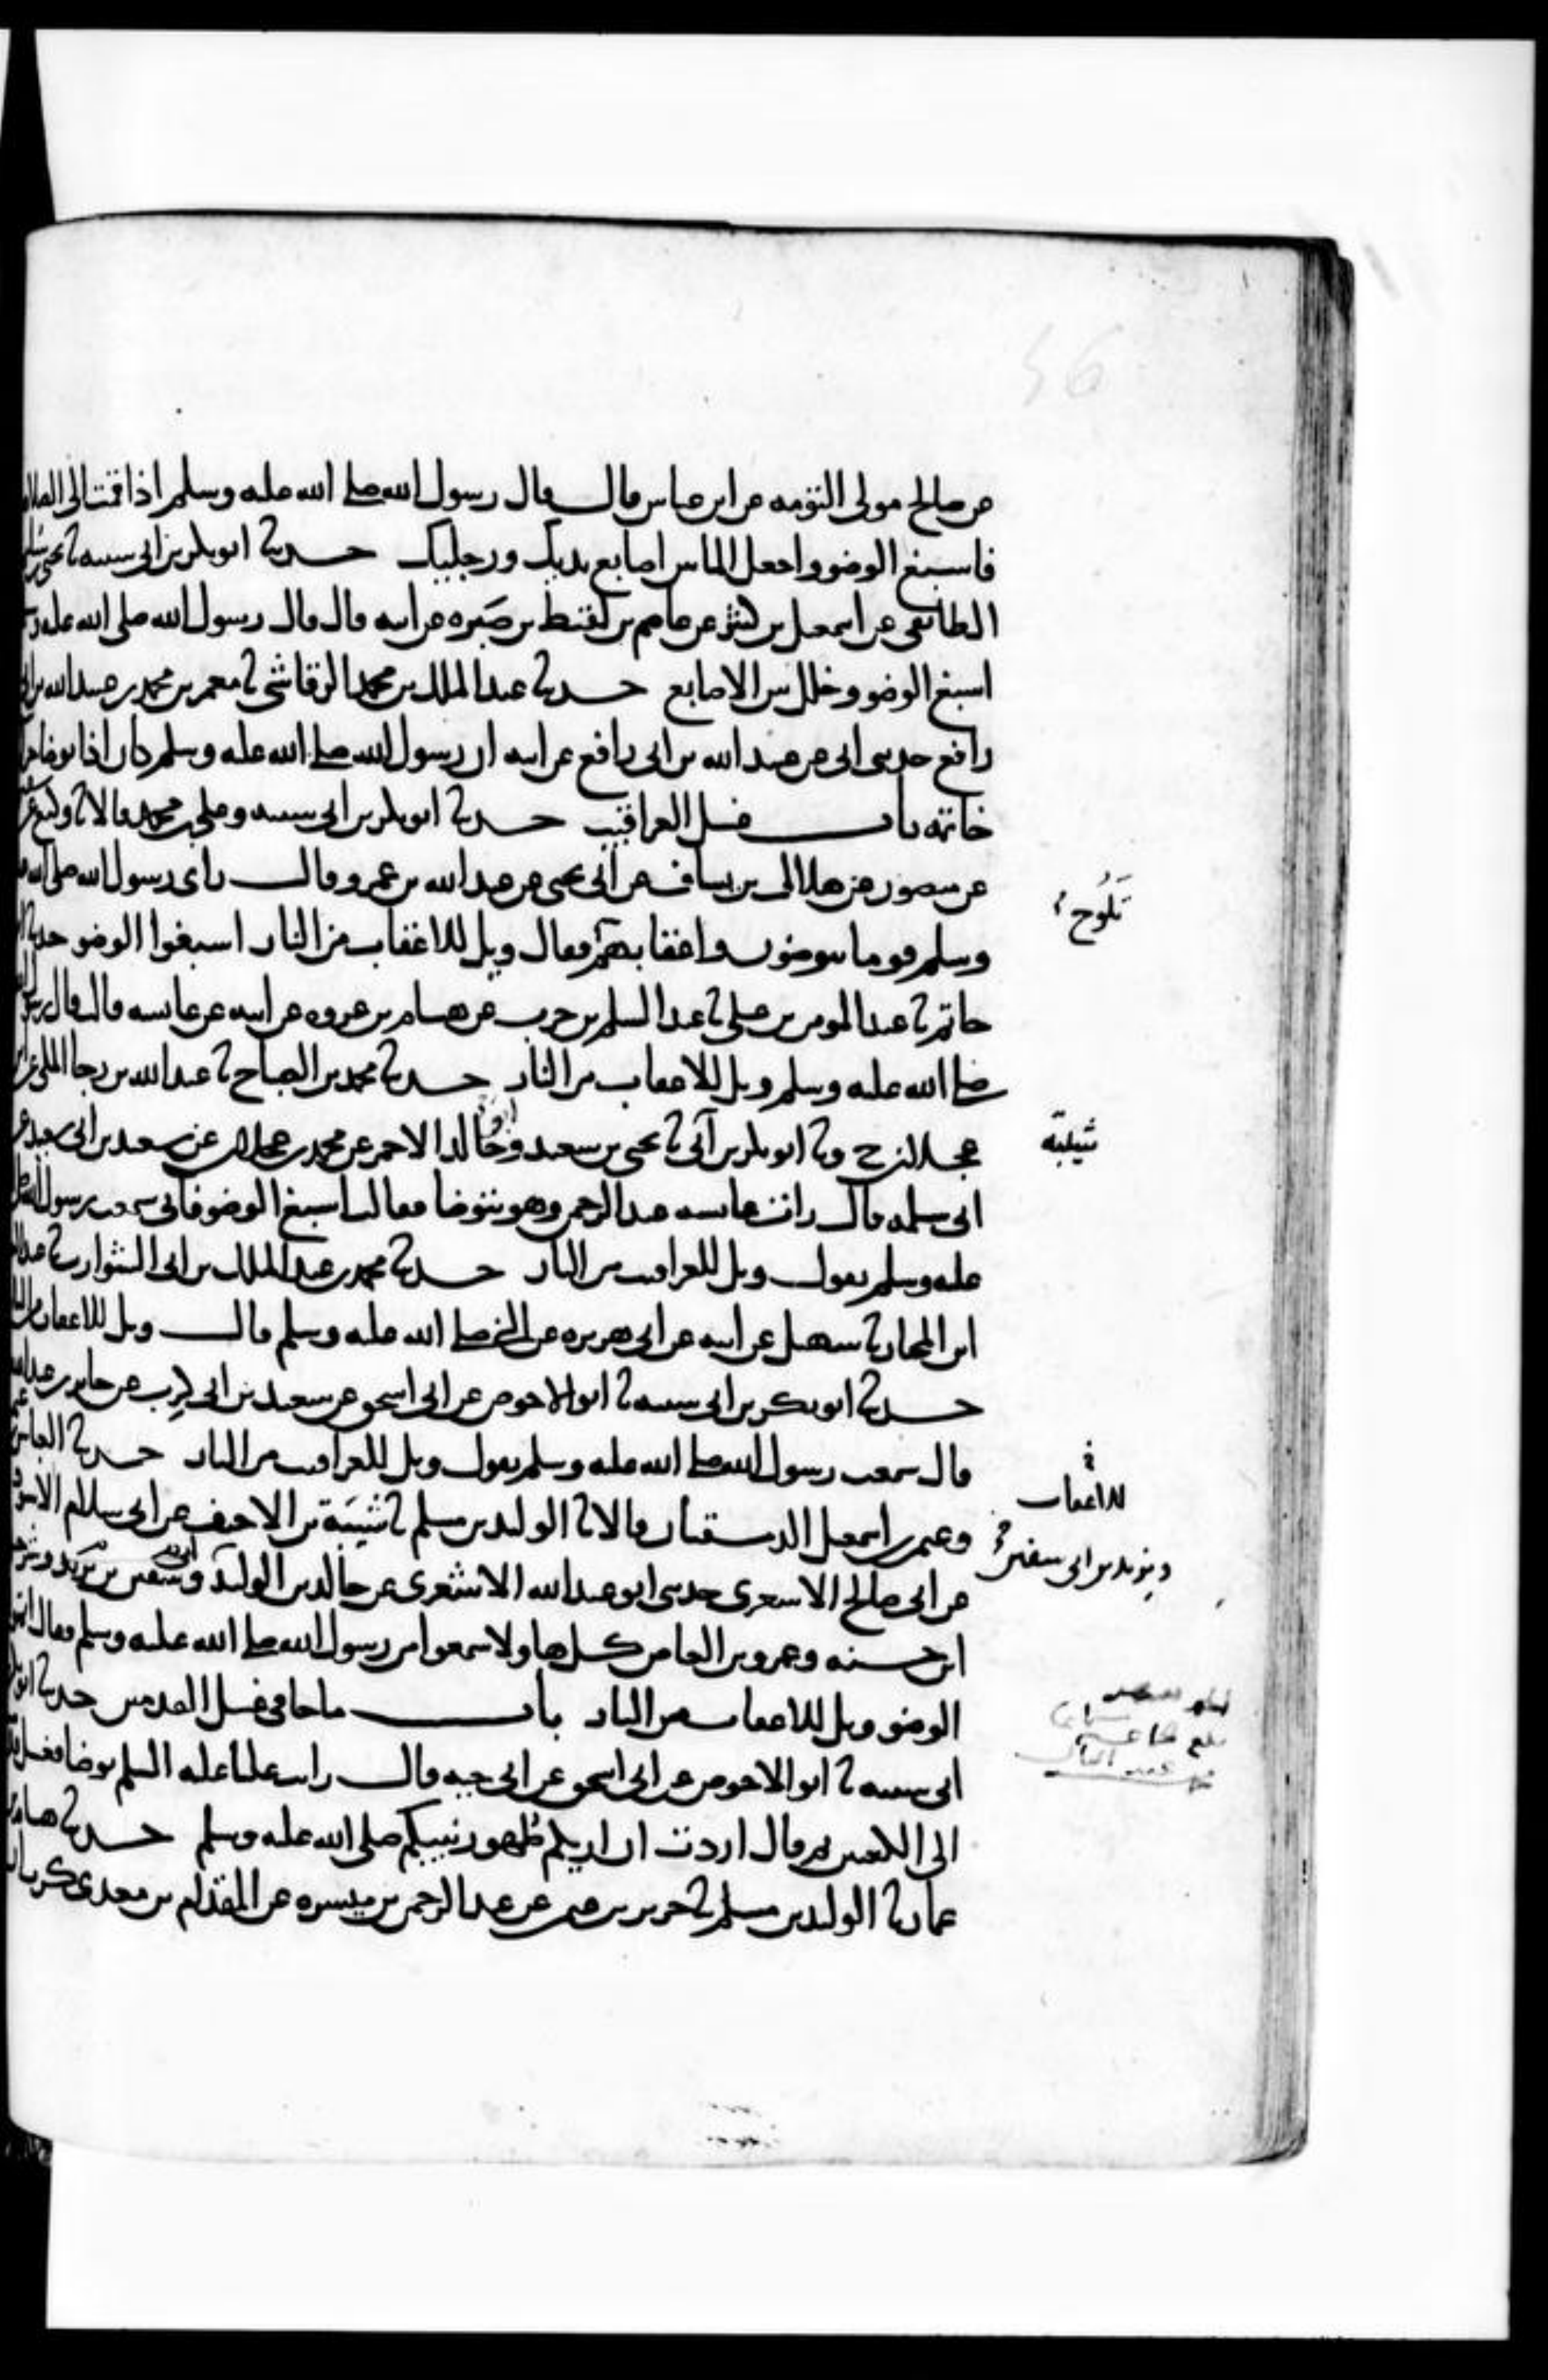 عن صالح مولى التؤمه عن ابن عباس قال قال رسول الله صلى الله عليه وسلم اذا قمت الى الصلاه
فاسبغ الوضو واجعل الما بين اصابع يديك ورجليك حدثنا ابو بكر بن ابي شيبه ثنا يحيى بن سليم
الطائفي عن اسمعيل بن كثير عن عاصم بن لقيط بن صَبِره عن ابيه قال قال رسول الله صلى الله عليه
اسبغ الوضو وخلل بين الاصابع حدثنا عبد الملك بن محمد الرقاشي ثنا معمر بن محمد بن عبيد الله بن ابي
رافع حدثني ابي عن عبيد الله بن ابي رافع عن ابيه ان رسول الله صلى الله عليه وسلم كان اذا توضا حرك
خاتمه باب غسل العراقيب حدثنا ابو بكر بن ابي شيبه وعلي بن محمد قالا ثنا وكيع عن
عن منصور عن هلال بن يساف عن ابي يحيى عن عبد الله بن عمرو قال راى رسول الله صلى الله
وسلم قوما يتوضون واعقابهم فقال ويل للاعقاب من النار اسبغوا الوضو حدثنا
تَلُوحُ
حاتم ثنا عبد المومن بن علي ثنا عبد السلم بن حرب عن هشام بن عروه عن ابيه عن عايشه قالت قال رسول
صلى الله عليه وسلم ويل للاعقاب من النار حدثنا محمد بن الصباح ثنا عبد الله بن رجا المكي عن
عجلان ح وثنا ابو بكر بن ابي ثنا يحيى بن سعيد وابو خالد الاحمر عن محمد بن عجلان عن سعيد بن ابي سعيد عن
شيبة
ابي سلمه قال رات عايشه عبد الرحمن وهو يتوضا فقالت اسبغ الوضو فاني سمعت رسول الله صلى
عليه وسلم يقول ويل للعراقيب من النار حدثنا محمد بن عبد الملك بن ابي الشوارب ثنا عبد
ابن المختار ثنا سهيل عن ابيه عن ابي هريره عن النبي صلى الله عليه وسلم قال ويل للاعقاب من النار
حدثنا ابو بكر بن ابي شيبه ثنا ابو الاحوص عن ابي اسحق عن سعيد بن ابي كرب عن جابر بن عبد الله
قال سمعت رسول الله صلى الله عليه وسلم يقول ويل للعراقيب من النار حدثنا العباس
للاعقاب
وعثمن بن اسمعيل الدمشقيان قالا ثنا الوليد بن مسلم ثنا شَيْبَة بن الاحنف عن ابي سلام الاسود
عن ابي صالح الاشعري حدثني ابو عبد الله الاشعري عن خالد بن الوليد
ويزيد بن ابي سفين
ابن حسنه وعمرو بن العاص كل هاولا سمعوا من رسول الله صلى الله عليه وسلم فقال اتموا
الوضو ويل للاعقاب من النار باب ما جا في غسل القدمين حدثنا ابو بكر
ابي شيبه ثنا ابو الاحوص عن ابي اسحق عن ابي حيه قال رايت عليا عليه السلم توضا فغسل
الى الكعبين ثم قال اردت ان اريكم طُهور نبيكم صلى الله عليه وسلم حدثنا هشام بن
عمار ثنا الوليد بن مسلم ثنا حريز بن عثمن عن عبد الرحمن بن ميسره عن المقدام بن معدي كرب ان
56